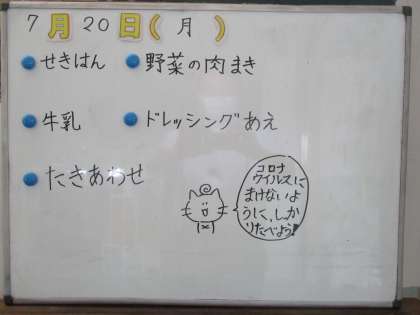 7月20日(月)
せきはん
野菜の肉まき
牛乳
ドレッシングあえ
たきあわせ
コロナ
ウイルスに
まけないよ
うに、しっか
りたべよう!